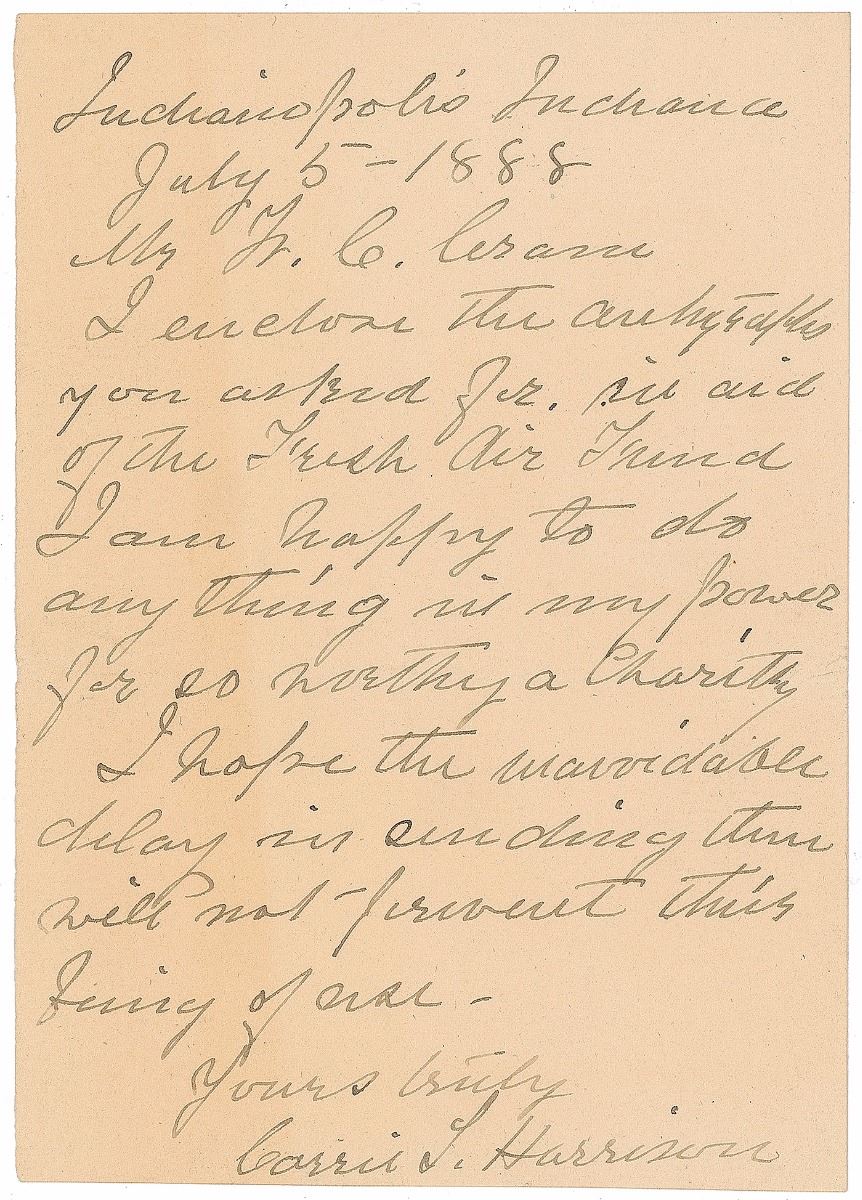 Indianapolis Indiana
July 5 - 1888
Mr W. C. Cram
I enclose the autographs
you asked for. in aid
of the Fresh Air Fund
I am happy to do
any thing in my power
for so worthy a Charity
I hope the unavoidable
delay in sending them
will not prevent their
being of use -
Yours truly
Carrie S. Harrison